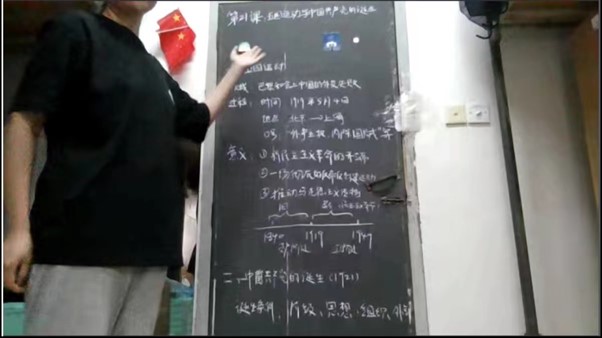 第21课 五四运动与中国共产党的诞生
五四运动
巴黎和会上中国的外交失败
过程: 时间 1919年5月4日
地点 北京→上海
口号 "外争主权, 内除国贼"等
意义: ①新民主主义革命的开端
②一场彻底的反帝反封建
③推动马克思主义传播
旧 新
1840 1919 1949
二、中国共产党的诞生(1921)
诞生条件, 阶级、思想、组织、